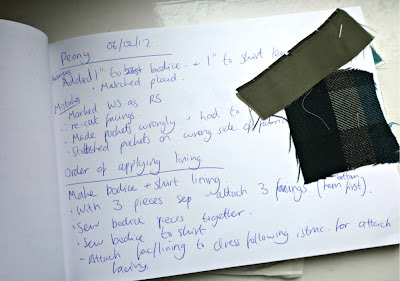 Peony 06/02/12
Added 1" to bodice + 1" to skirt
· Matched plaid.
Mistakes
· Marked WS as RS
· re-cut facings
· Made pockets wrongly - had to
· Stitched pockets on wrong side of fabric
Order of applying lining
Make bodice + skirt lining
· With 3 pieces sep - attach 3 facings (hem bottom first).
· Sew bodice pieces together.
· Sew bodice to skirt
- Attach fac/lining to dress following istruc. for attach
facing.